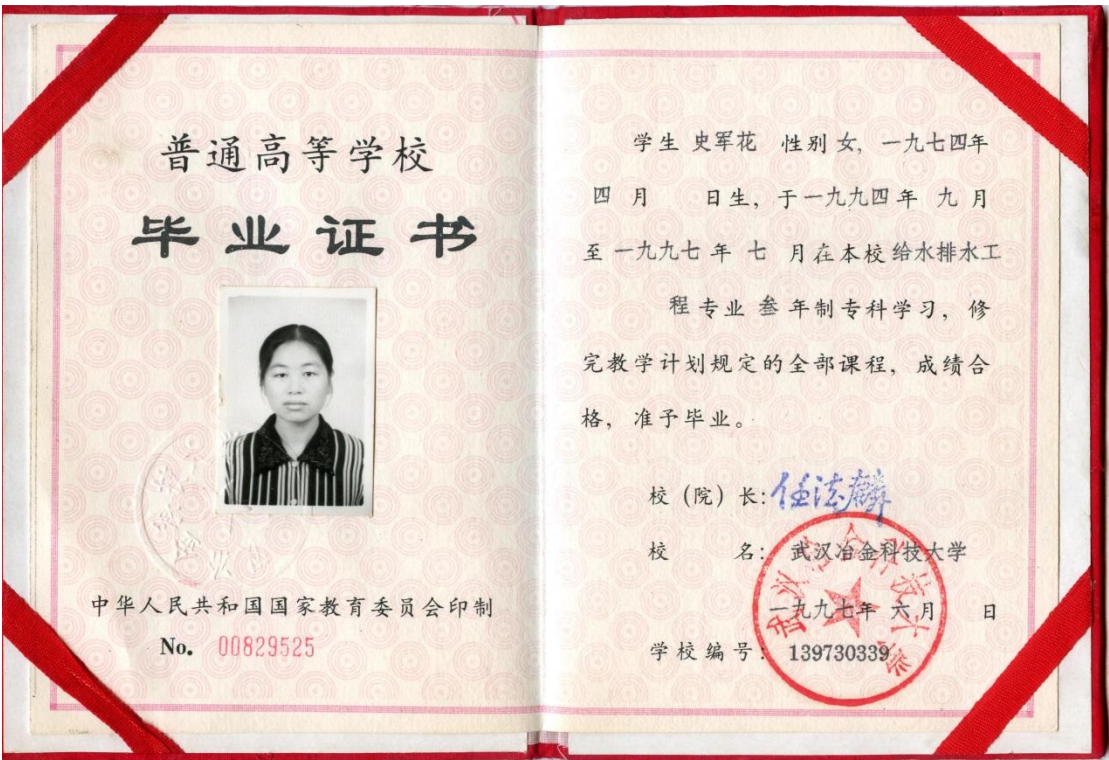 普通高等学校
毕业证书
中华人民共和国国家教育委员会印制
No. 00829525
学生 史军花 性别 女, 一九七四年
四 月 日生, 于一九九四年 九 月
至 一九九七 年 七 月在本校给水排水工
程专业 叁 年制专科学习, 修
完教学计划规定的全部课程, 成绩合
格, 准予毕业。
校 (院) 长: 任法麟
校 名: 武汉冶金科技大学
一九九七年 六月 日
学校编号: 139730339
武汉冶金科技大学